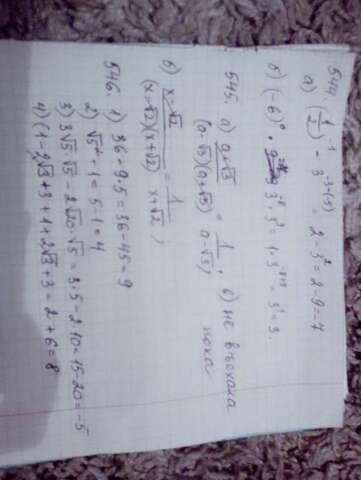 544.
а) (1/2)^-1 - 3^-3-(-5) = 2 - 3^2 = 2 - 9 = -7
б) (-6)^0 · 3^-1 · 3^2 = 1 · 3^-1+2 = 3^1 = 3.
545. а) a+√3 / (a-√3)(a+√3) = 1 / a-√3 ; в) не въехала
пока
б) x-√2 / (x-√2)(x+√2) = 1 / x+√2 ;
546. 1) 36 - 9·5 = 36 - 45 = 9
2) √5² - 1 = 5 - 1 = 4
3) 3√5·√5 - 2√20·√5 = 3·5 - 2·10 = 15 - 20 = -5
4) (1 - 2√3 + 3 + 1 + 2√3 + 3 = 2 + 6 = 8